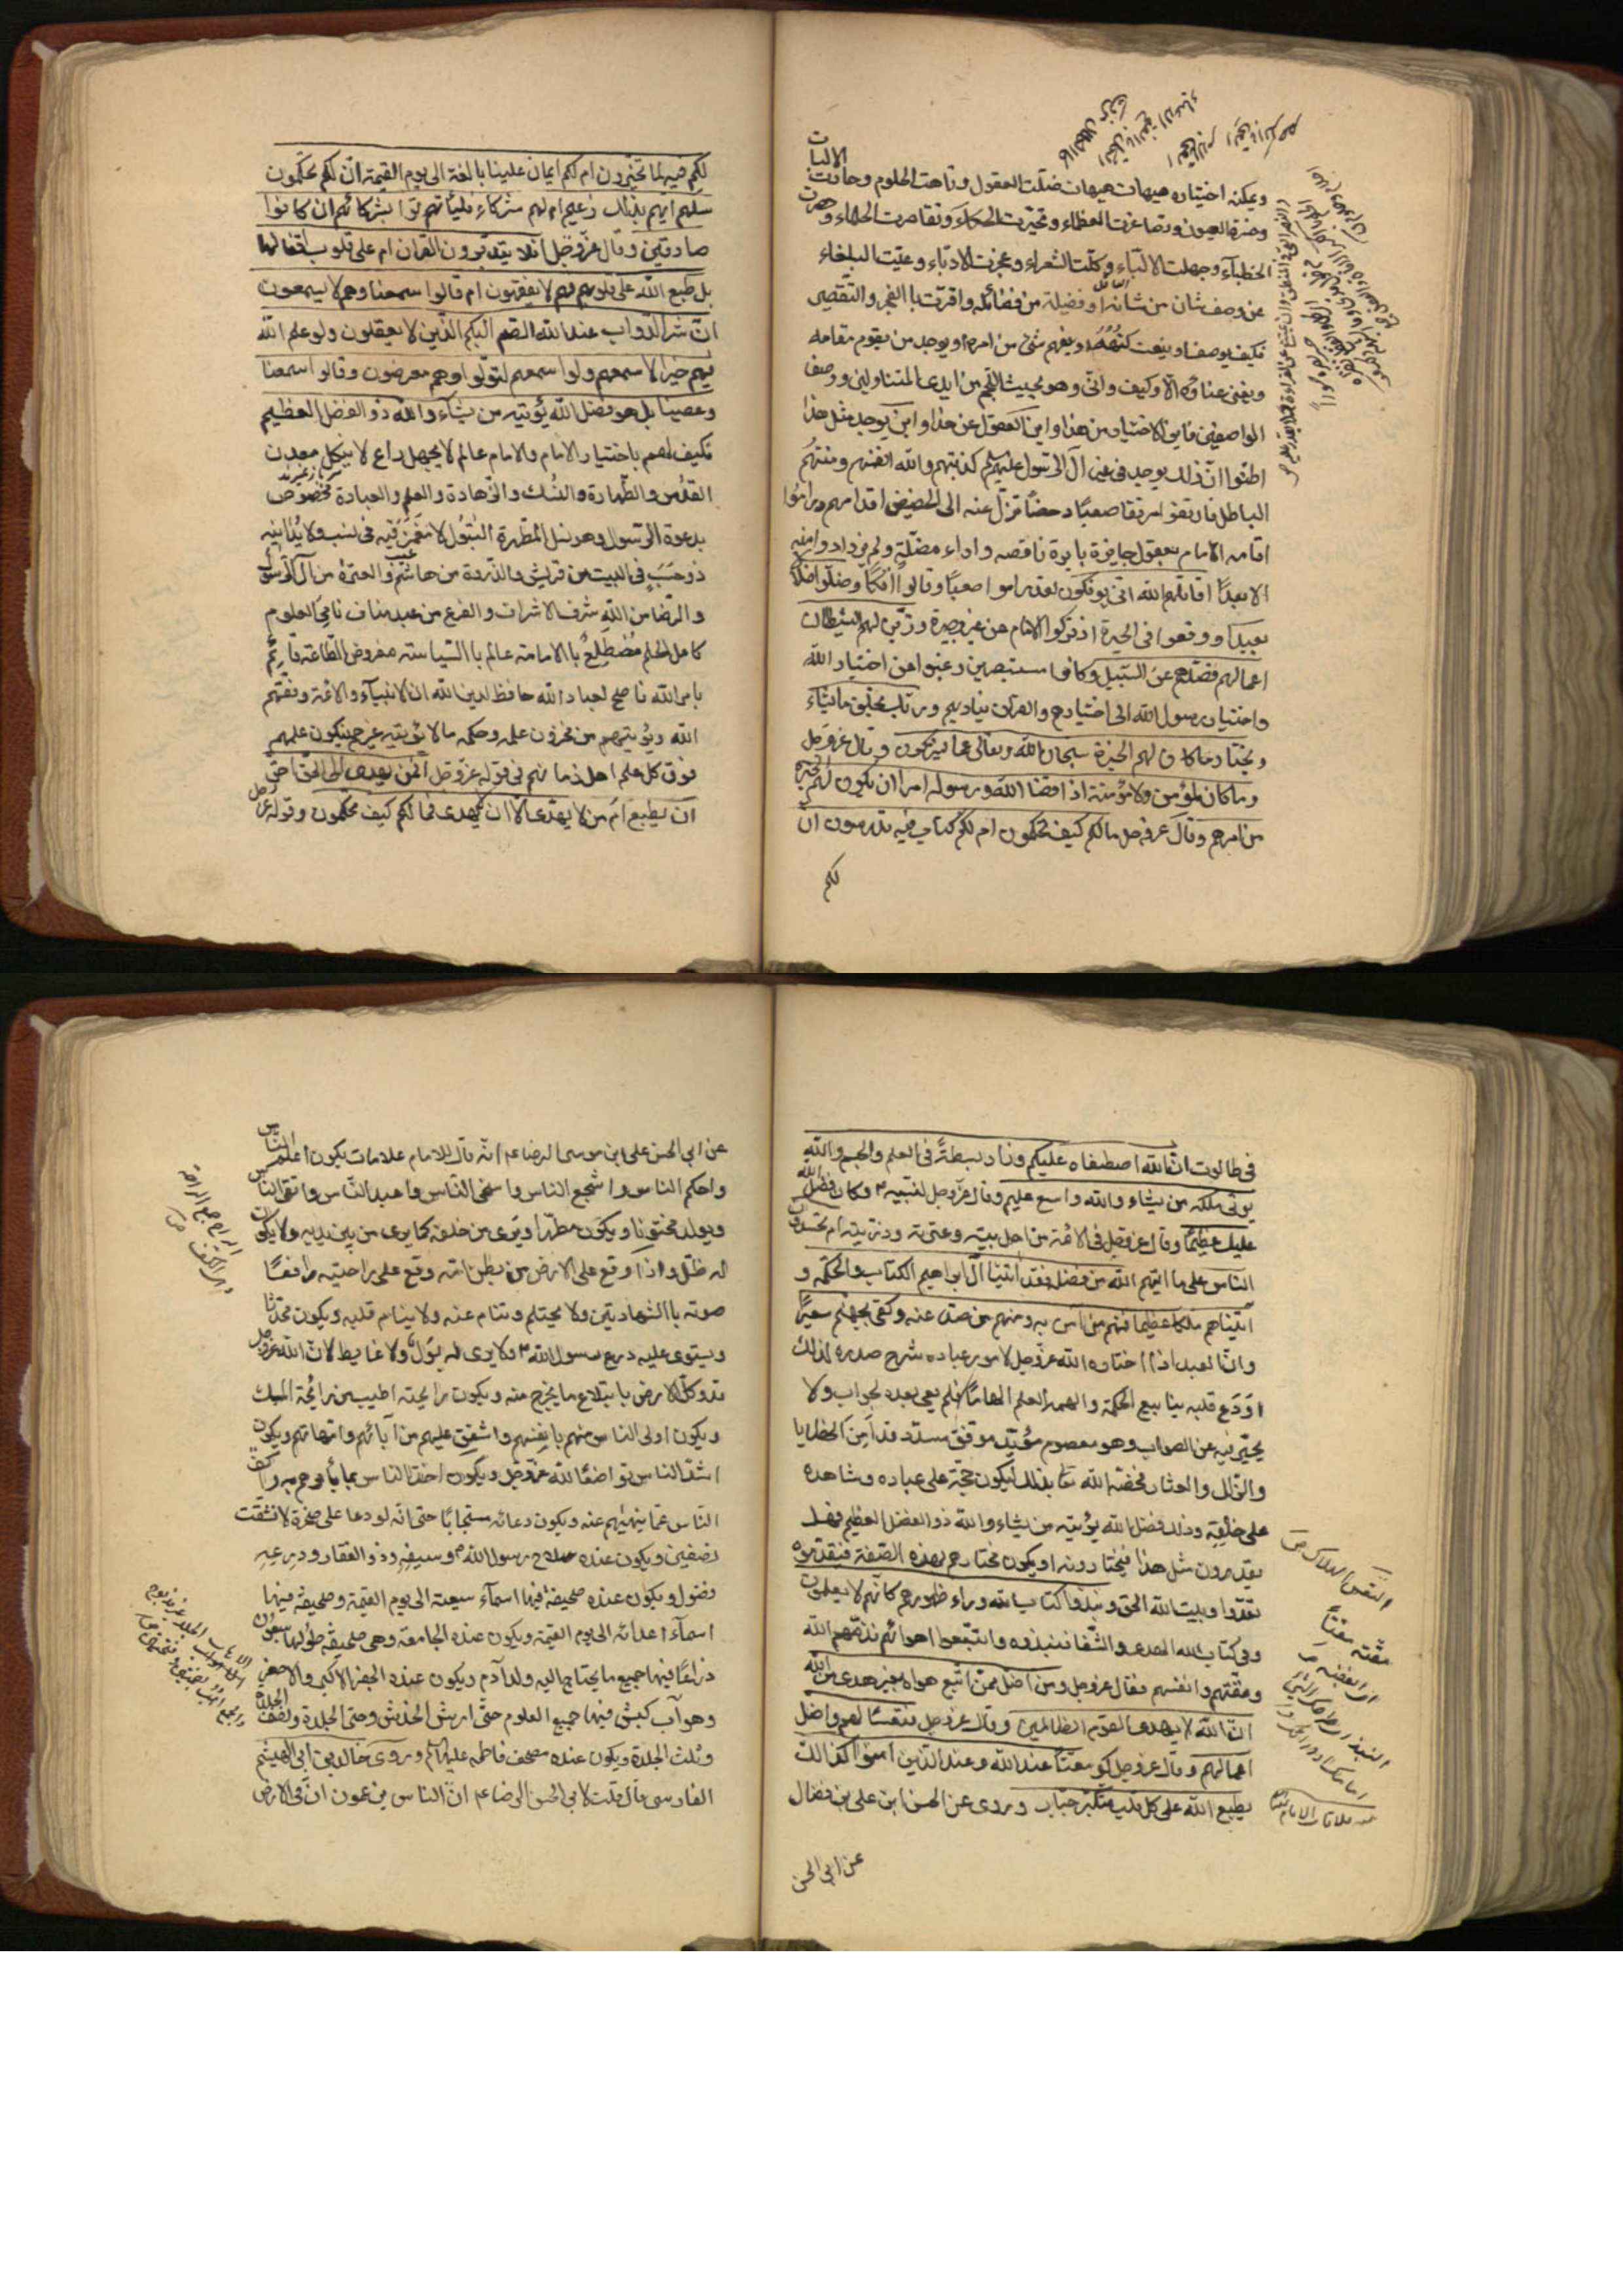 ويمكنه اختياره هيهات هيهات ضلّت العقول وتاهت الحلوم وحارت الالباب
وعزة العيون وتصاغرت العظماء وتحيّرت الحكماء وتقاصرت الحلماء وحصرت
الخطبآء وجهلت الالبّاء وكلّت الشعراء وعجزت الادبّاء وعيّت البلغاء
عن وصف شان من شانه او فضيلة من فضائله واقرّت باالعجز والتّقصير
فكيف يوصف او ينعت بكنهه او يفهم شئ من امره او يوجد من يقوم مقامه
ويغنى غناؤه لا وكيف وانّى وهو بحيث النّجم من ايدى المتناولين ووصف
الواصفين فاين الاختيار من هذا واين العقول عن هذا واين يوجد مثل هذا
اظنّوا انّ ذلك يوجد فى غير آل الرسول عليهم كذبتهم والله انفسهم ومنتهم
الباطل فارتقوا مرتقا صعبًا دحضًا تزلّ عنه الى الحضيض اقدامهم وراموا
اقامه الامام بعقول جايرة بايرة ناقصه واراء مضلّة ولم يزدادوا منه
الا بعدًا قاتلهم الله انى يوفكون لقد راموا صعبًا وقالوا افكًا وضلّوا ضلالاً
بعيدًا ووقعوا فى الحيرة اذ تركوا الامام عن غير بصيرة وزيّن لهم الشيطان
اعمالهم فصدّهم عن السّبيل وكانوا مستبصرين رغبوا عن اختيار الله
واختيار رسول الله الى اختيارهم والقرآن يناديهم وربك يخلق ما يشاء
ويختار ما كان لهم الخيرة سبحان الله وتعالى عما يشركون وقال عزوجل
وما كان لمؤمن ولا مؤمنة اذا قضا الله ورسوله امرا ان يكون لهم الخيرة
من امرهم وقال عزوجل مالكم كيف تحكمون ام لكم كتاب فيه تدرسون انّ
لكم
لكم فيه لما تخيّرون ام لكم ايمان علينا بالغة الى يوم القيمة انّ لكم لما تحكمون
سلهم ايّهم بذلك زعيم ام لهم شركاء فليأتوا بشركائهم ان كانوا
صادقين وقال عزّوجلّ افلا يتدبّرون القران ام على قلوب اقفالها
بل طبع الله على قلوبهم فهم لا يفقهون ام قالوا سمعنا وهم لا يسمعون
انّ شرّ الدّواب عند الله الصّم البكم الّذين لا يعقلون ولو علم الله
فيهم خيرًا لاسمعهم ولو اسمعهم لتولّوا وهم معرضون وقالوا سمعنا
وعصينا بل هو فضل الله يؤتيه من يشآء والله ذو الفضل العظيم
فكيف لهم باختيار الامام والامام عالم لا يجهل راع لا ينكل معدن
القدس والطّهارة والنّسك والزّهادة والعلم والعبادة مخصوص
بدعوة الرّسول وهو نسل المطهرة البتول لا مغمز فيه فى نسب ولا يدانيه
ذو حسب فى البيت من قريش والذّروة من هاشم والعترة من آل الرّسول
والرّضا من الله شرف الاشراف والفرع من عبد مناف نامى العلوم
كامل الحلم مضطلع باالامامة عالم باالسّياسة مفروض الطّاعة قائم
بامر الله ناصح لعباد الله حافظ لدين الله ان الانبيآء والائمة يوفّقهم
الله ويؤتيهم من مخزون علمه وحكمه ما لا يؤتيه غيرهم فيكون علمهم
فوق كل علم اهل زمانهم فى قوله عزوجل افمن يهدى الى الحق احقّ
ان يطبع امّن لا يهدّى الا ان يهدى فمالكم كيف تحكمون وقوله عزوجل
فى طالوت انّ الله اصطفاه عليكم وزاد بسطةً فى العلم والجسم والله
يؤتى ملكه من يشاء والله واسع عليم وقال عزّوجل لنبيه وكان فضل الله
عليك عظيمًا وقال عزوجل فى الائمة من اهل بيته وعترته وذريته ام يحسدون
الناس على ما اتيهم الله من فضله فقد اتينا آل ابراهيم الكتاب والحكمة و
آتيناهم ملكًا عظيمًا فمنهم من آمن به ومنهم من صدّ عنه وكفى بجهنم سعيرًا
وانّ العبد اذا اختاره الله عزّوجل لامور عباده شرح صدره لذلك
اودع قلبه ينابيع الحكمة والهمه العلم الهامًا فلم يعى بعده بجواب ولا
يحيّر فيه عن الصواب وهو معصوم مؤيّد موفّق مسدّد قد آمن الخطايا
والزّلل والعثار فخصّه الله بذلك ليكون حجّة على عباده وشاهده
على خلقه وذلك فضل الله يؤتيه من يشاء والله ذو الفضل العظيم فهل
يقدرون مثل هذا فيختارونه او يكون مختارهم بهذه الصّفة فيقدموه
تعدّوا وبيت الله الحق ونبذوا كتاب الله وراء ظهورهم كانّهم لا يعلمون
وفى كتاب الله الهدى والشّفا فنبذوه واتّبعوا اهوائهم فذمّهم الله
ومقّتهم وانفسهم فقال عزوجل ومن اضل ممّن اتّبع هواه بغير هدى من الله
انّ الله لا يهدى القوم الظالمين وقال عزوجل فتعسًا لهم واضل
اعمالهم وقال عزوجل كبر مقتًا عند الله وعند الّذين آمنوا كذالك
يطبع الله على كل قلب متكبّر جبّار وروى عن الحسن ابن على بن فضال
عن ابى الحسن
عن ابى الحسن على ابن موسى الرضا ع انّه قال للامام علامات يكون اعلم النّاس
واحكم الناس واشجع الناس واسخى النّاس واعبد النّاس واتقى النّاس
ويولد مختونًا ويكون مطهّرا ويرى من خلفه كما يرى من بين يديه ولا يكون
له ظلّ واذا وقع على الارض من بطن امّه وقع على راحتيه رافعًا
صوته باالشهادتين ولا يحتلم وتنام عينه ولا ينام قلبه ويكون محدّثا
ويستوى عليه درع رسول الله ولا يرى له بول ولا غايط لانّ الله عزوجل
قد وكّل الارض بابتلاع ما يخرج منه ويكون رايحته اطيب من رائحة المسك
ويكون اولى الناس منهم بانفسهم واشفق عليهم من آبائهم وامّهاتهم ويكون
اشدّ الناس تواضعًا لله عزّوجل ويكون اخذ الناس بما يأمرهم به واكفّ
الناس عمّا ينهيهم عنه ويكون دعائه مستجابًا حتى انّه لو دعا على صخرة لانشقت
نصفين ويكون عنده سلاح رسول الله وسيفه وذو الفقار ودرعه
فضول ويكون عنده صحيفة فيها اسمآء شيعته الى يوم القيمة وصحيفة فيها
اسمآء اعدائه الى يوم القيمة ويكون عنده الجامعة وهى صحيفة طولها سبعون
ذراعًا فيها جميع ما يحتاج اليه ولد آدم ويكون عنده الجفر الاكبر والاصغر
وهو آب كبش فيها جميع العلوم حتّى ارش الخدش وحتى الجلدة ونصف الجلدة
وثلث الجلدة ويكون عنده مصحف فاطمه عليها السلام وروى خالد بن ابى الهيثم
الفارسى قال قلت لابى الحسن الرضا ع انّ الناس يزعمون انّ فى الارض